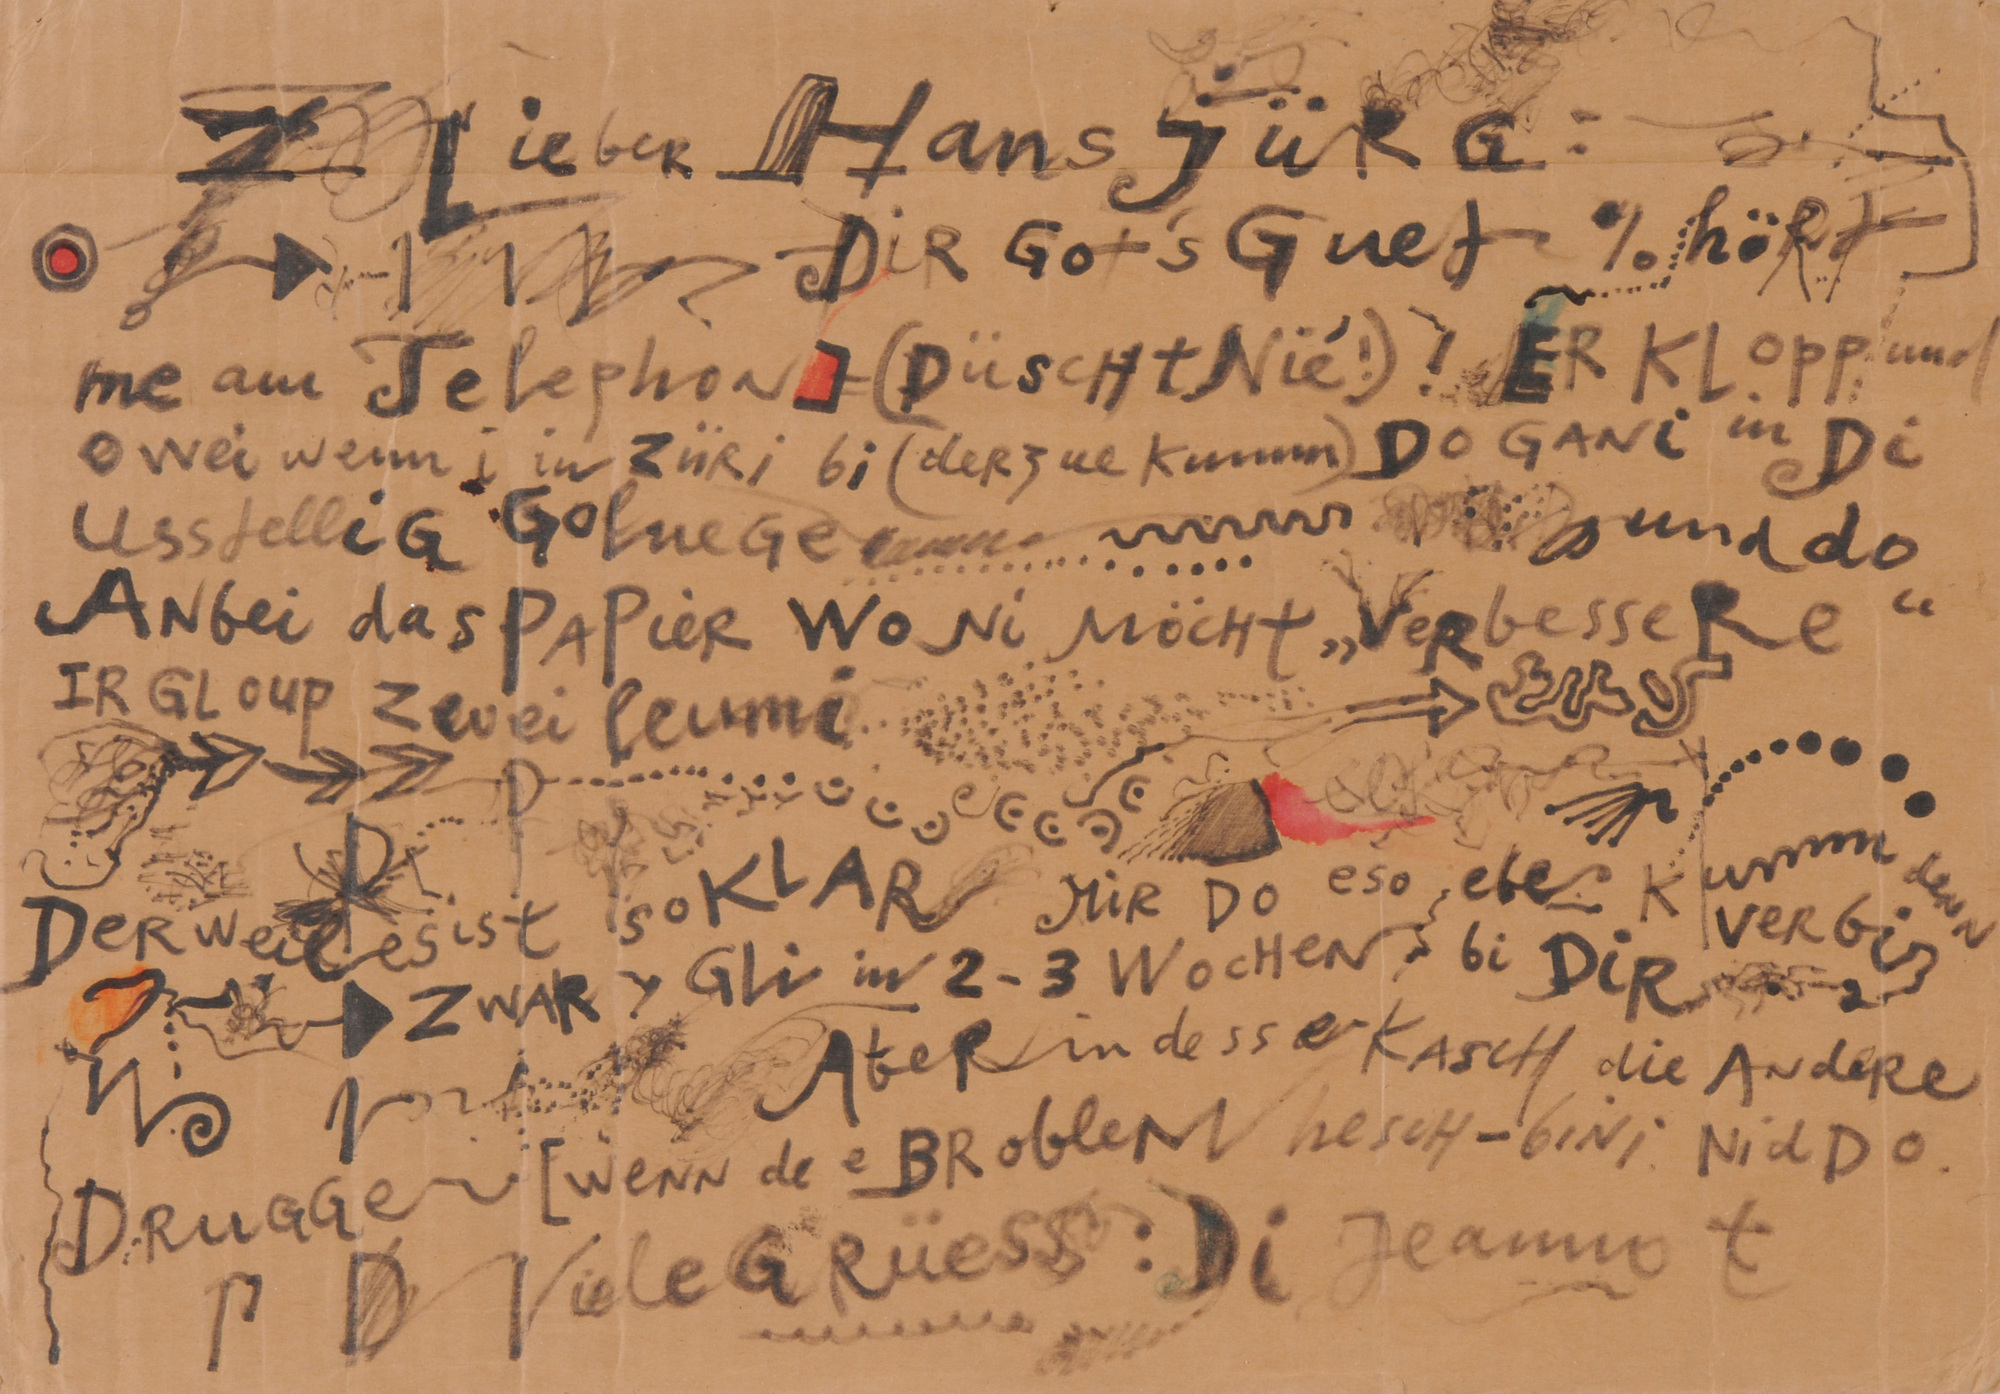 Lieber Hans JüRG:
DiR Got's Guet % höRt
me am Telephon =(DüscHtNié!)? ER KLopp und
o wei wenn i in ZüRi bi (derzue Kumm) DO GANi in Di
UsstelliG Go luege und do
ANbei das PAPieR WoNi MöcHt „VeRbesseRe“
IR GLoup zwei leumi
DeRweil es ist soKLAR MiR DO eso ebe Kumm denn
VeRbi
ZWAR Gli in 2-3 WocHeN bi DiR
AbeR indesse KAscH die ANdeRe
DRuGGe [weNN de e BRobleM hescH-biNi Nid Do.
Viele GRüess: Di Jeannot